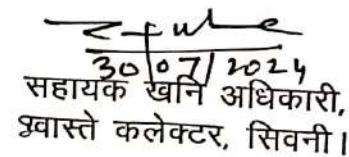 30/07/2024
सहायक खनि अधिकारी,
श्वास्ते कलेक्टर, सिवनी।